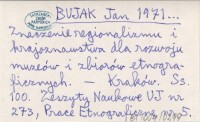 BUJAK Jan 1971...
Znaczenie regionalizmu i
krajoznawstwa dla rozwoju
muzeów i zbiorów etnogra-
ficznych. – Kraków. Ss.
100. Zeszyty Naukowe UJ nr
273, Prace Etnograficzne 5.